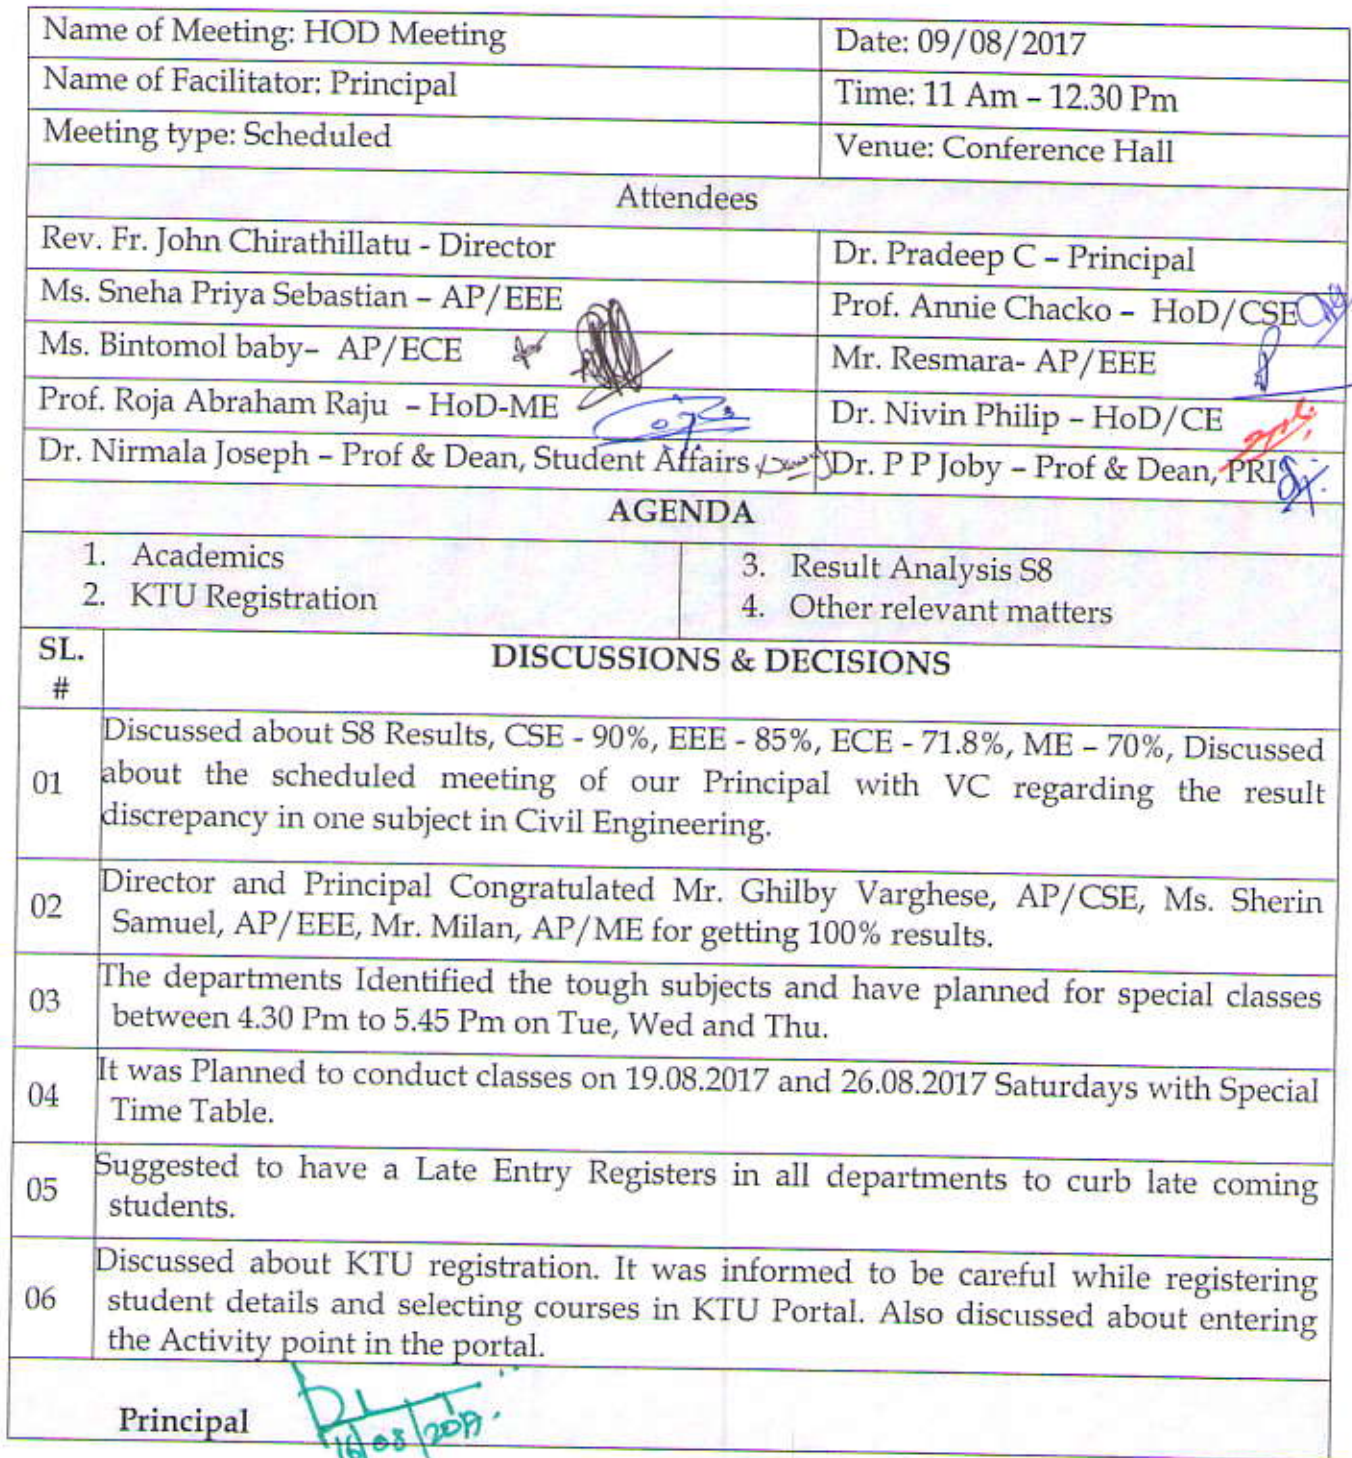 Name of Meeting: HOD Meeting
Date: 09/08/2017
Name of Facilitator: Principal
Time: 11 Am – 12.30 Pm
Meeting type: Scheduled
Venue: Conference Hall
Attendees
Rev. Fr. John Chirathillatu - Director
Dr. Pradeep C – Principal
Ms. Sneha Priya Sebastian – AP/EEE
Prof. Annie Chacko – HoD/CSE
Ms. Bintomol baby– AP/ECE
Mr. Resmara- AP/EEE
Prof. Roja Abraham Raju – HoD-ME
Dr. Nivin Philip – HoD/CE
Dr. Nirmala Joseph – Prof & Dean, Student Affairs
Dr. P P Joby – Prof & Dean, PRI
AGENDA
1. Academics
2. KTU Registration
3. Result Analysis S8
4. Other relevant matters
SL.
#
DISCUSSIONS & DECISIONS
01
Discussed about S8 Results, CSE - 90%, EEE - 85%, ECE - 71.8%, ME – 70%, Discussed
about the scheduled meeting of our Principal with VC regarding the result
discrepancy in one subject in Civil Engineering.
02
Director and Principal Congratulated Mr. Ghilby Varghese, AP/CSE, Ms. Sherin
Samuel, AP/EEE, Mr. Milan, AP/ME for getting 100% results.
03
The departments Identified the tough subjects and have planned for special classes
between 4.30 Pm to 5.45 Pm on Tue, Wed and Thu.
04
It was Planned to conduct classes on 19.08.2017 and 26.08.2017 Saturdays with Special
Time Table.
05
Suggested to have a Late Entry Registers in all departments to curb late coming
students.
06
Discussed about KTU registration. It was informed to be careful while registering
student details and selecting courses in KTU Portal. Also discussed about entering
the Activity point in the portal.
Principal
16/08/2017